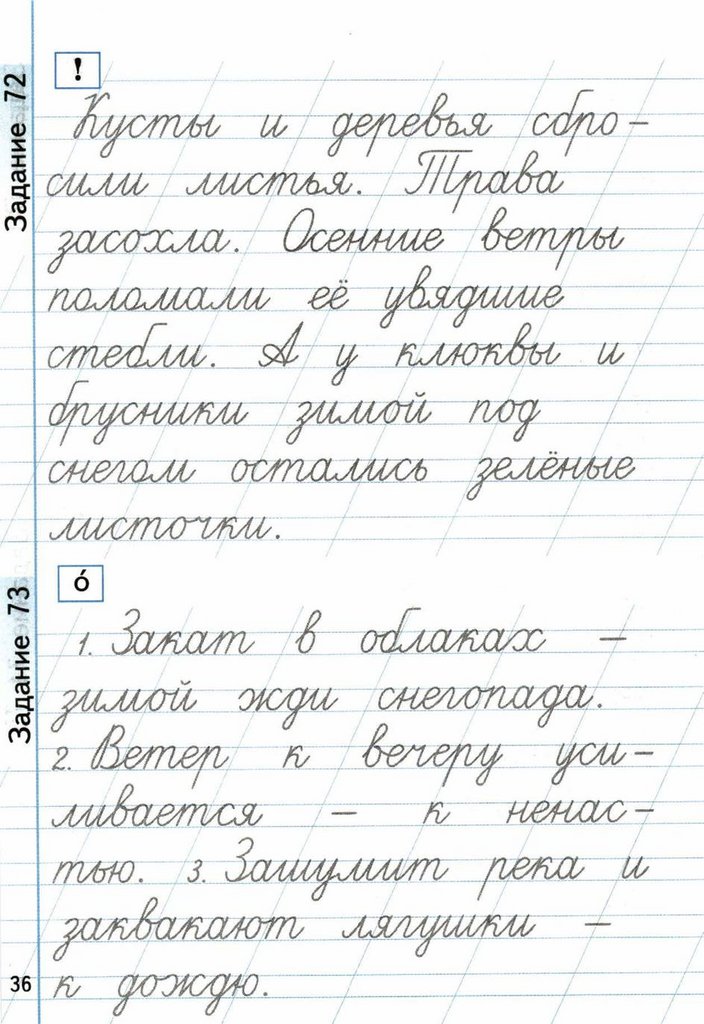 Задание 72
!
Кусты и деревья сбро-
сили листья. Трава
засохла. Осенние ветры
поломали её увядшие
стебли. А у клюквы и
брусники зимой под
снегом остались зелёные
листочки.
Задание 73
о́
1. Закат в облаках –
зимой жди снегопада.
2. Ветер к вечеру уси-
ливается – к ненас-
тью. 3. Зашумит река и
заквакают лягушки –
к дождю.
36